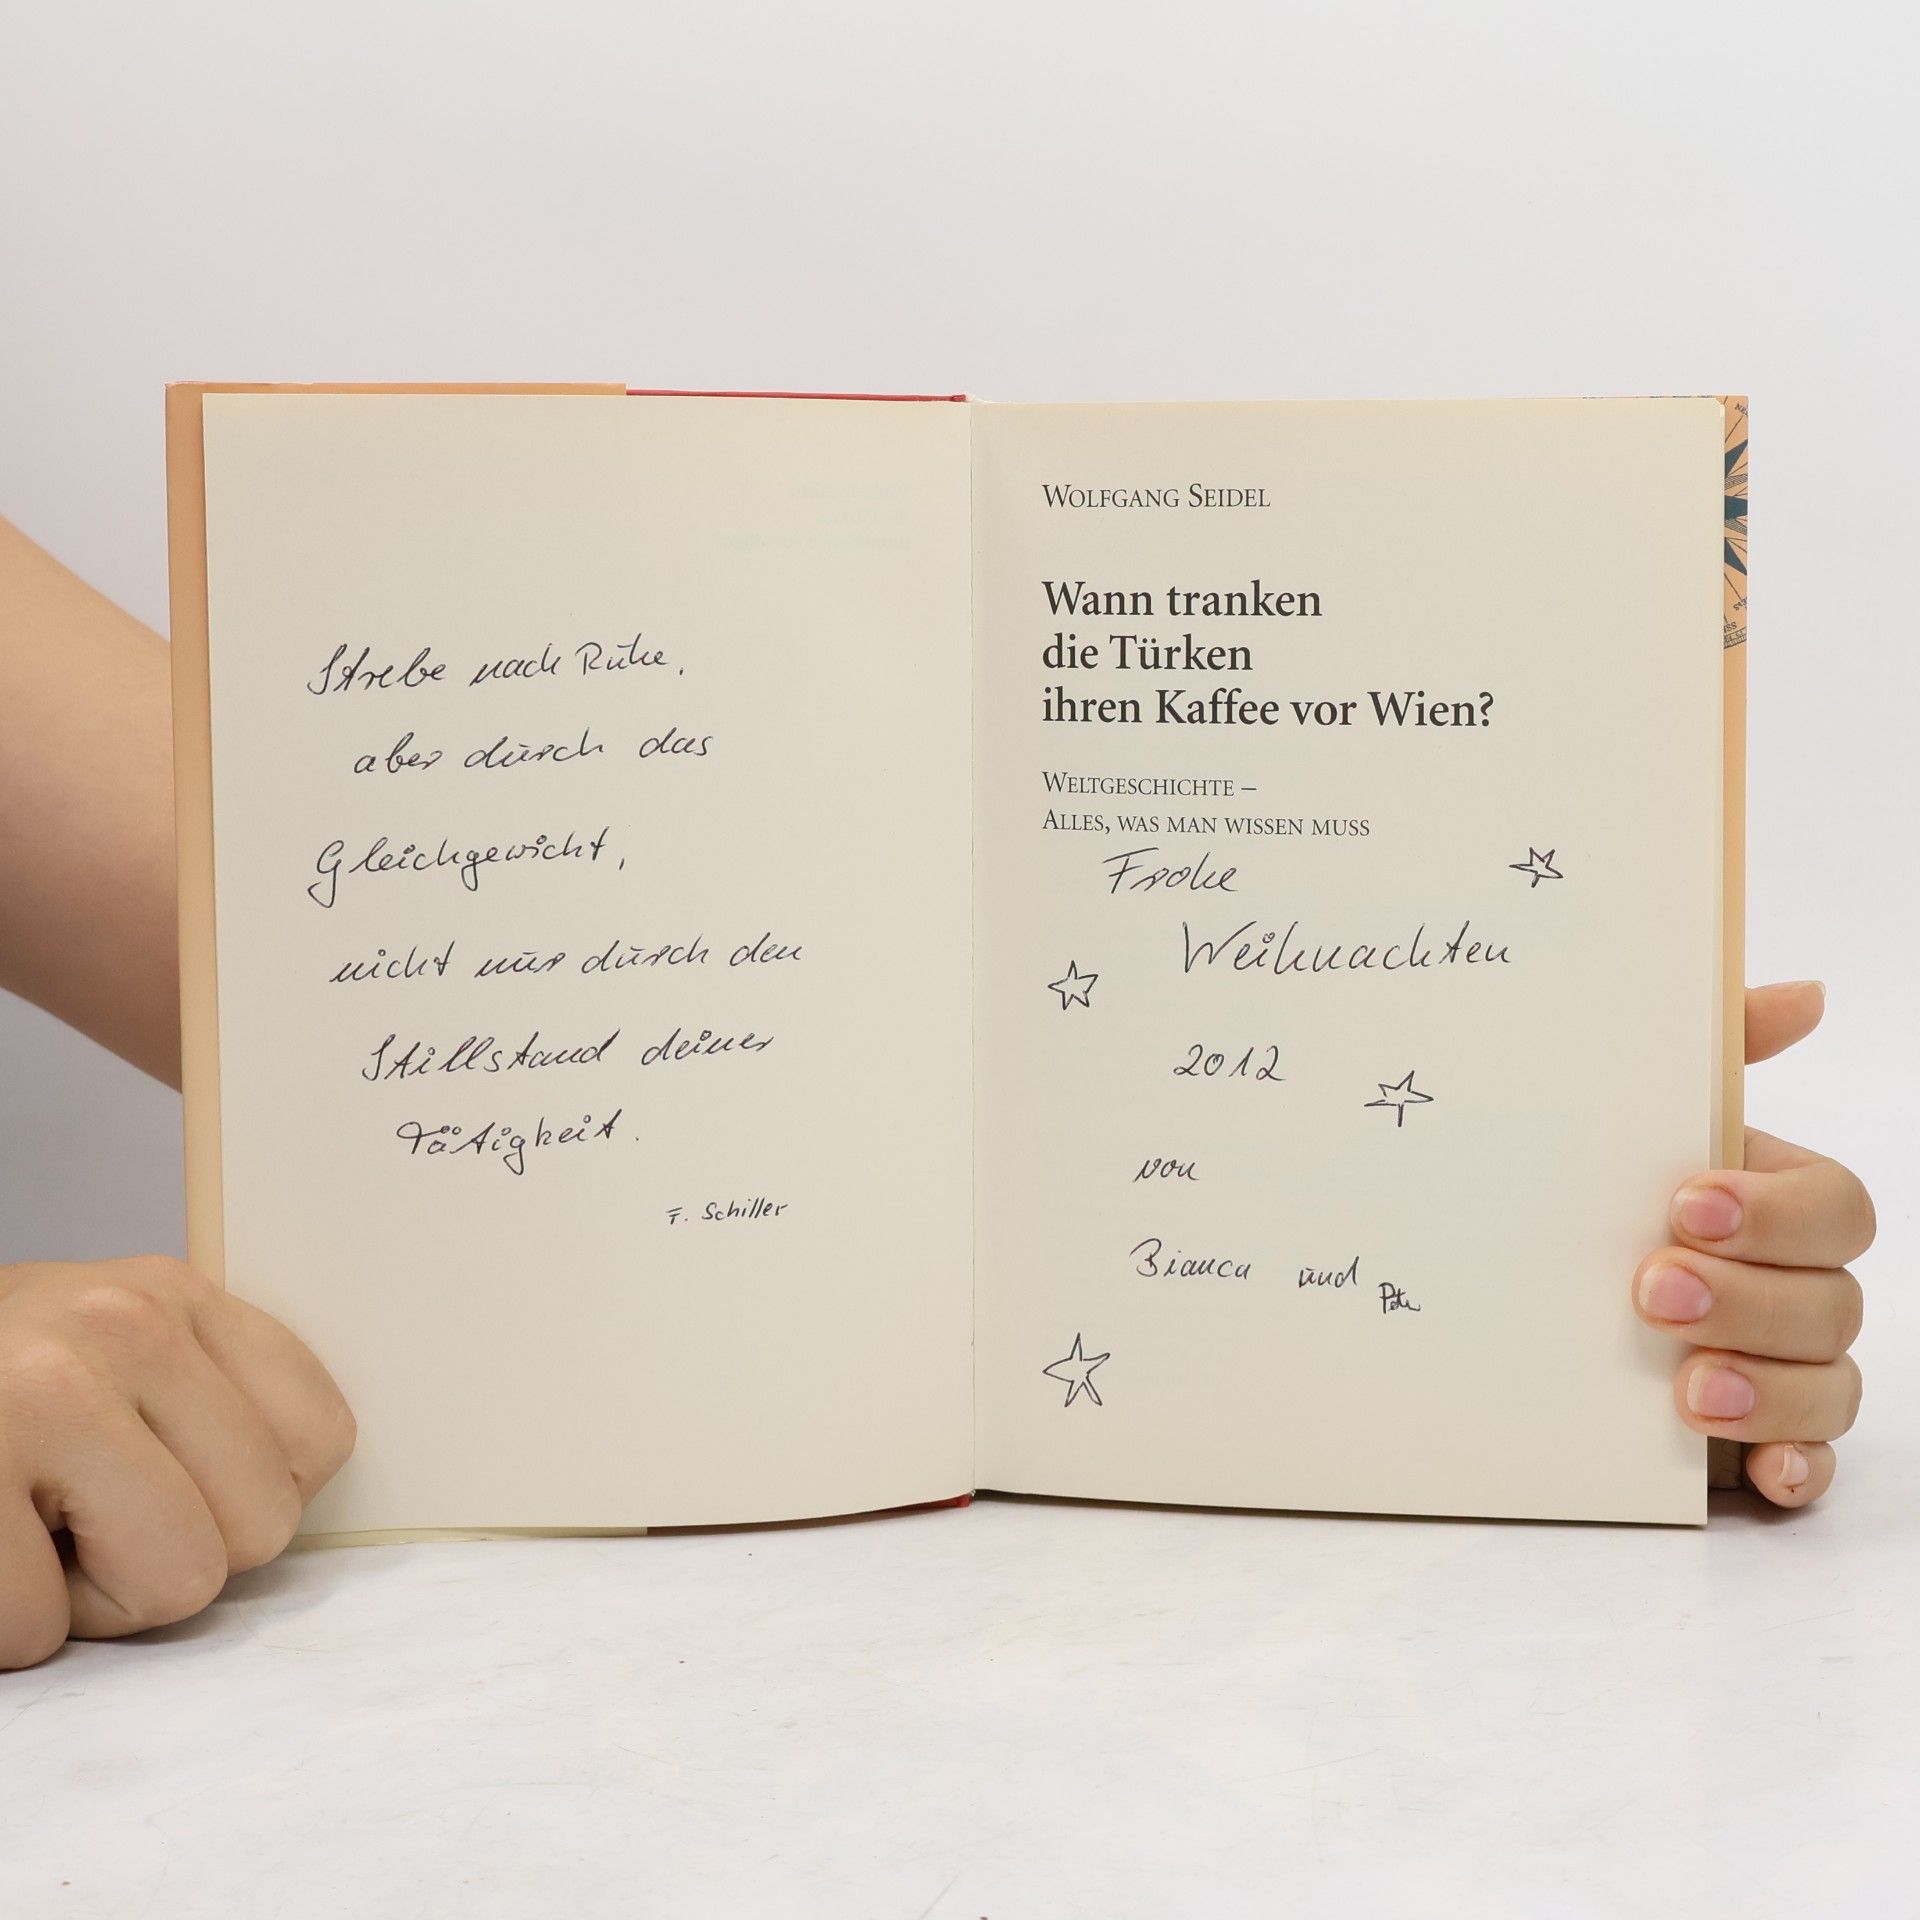 Strebe nach Ruhe,
aber durch das
Gleichgewicht,
nicht nur durch den
Stillstand deiner
Tätigkeit.
F. Schiller
WOLFGANG SEIDEL
Wann tranken
die Türken
ihren Kaffee vor Wien?
WELTGESCHICHTE –
ALLES, WAS MAN WISSEN MUSS
Frohe
Weihnachten
2012
von
Bianca und
Peter